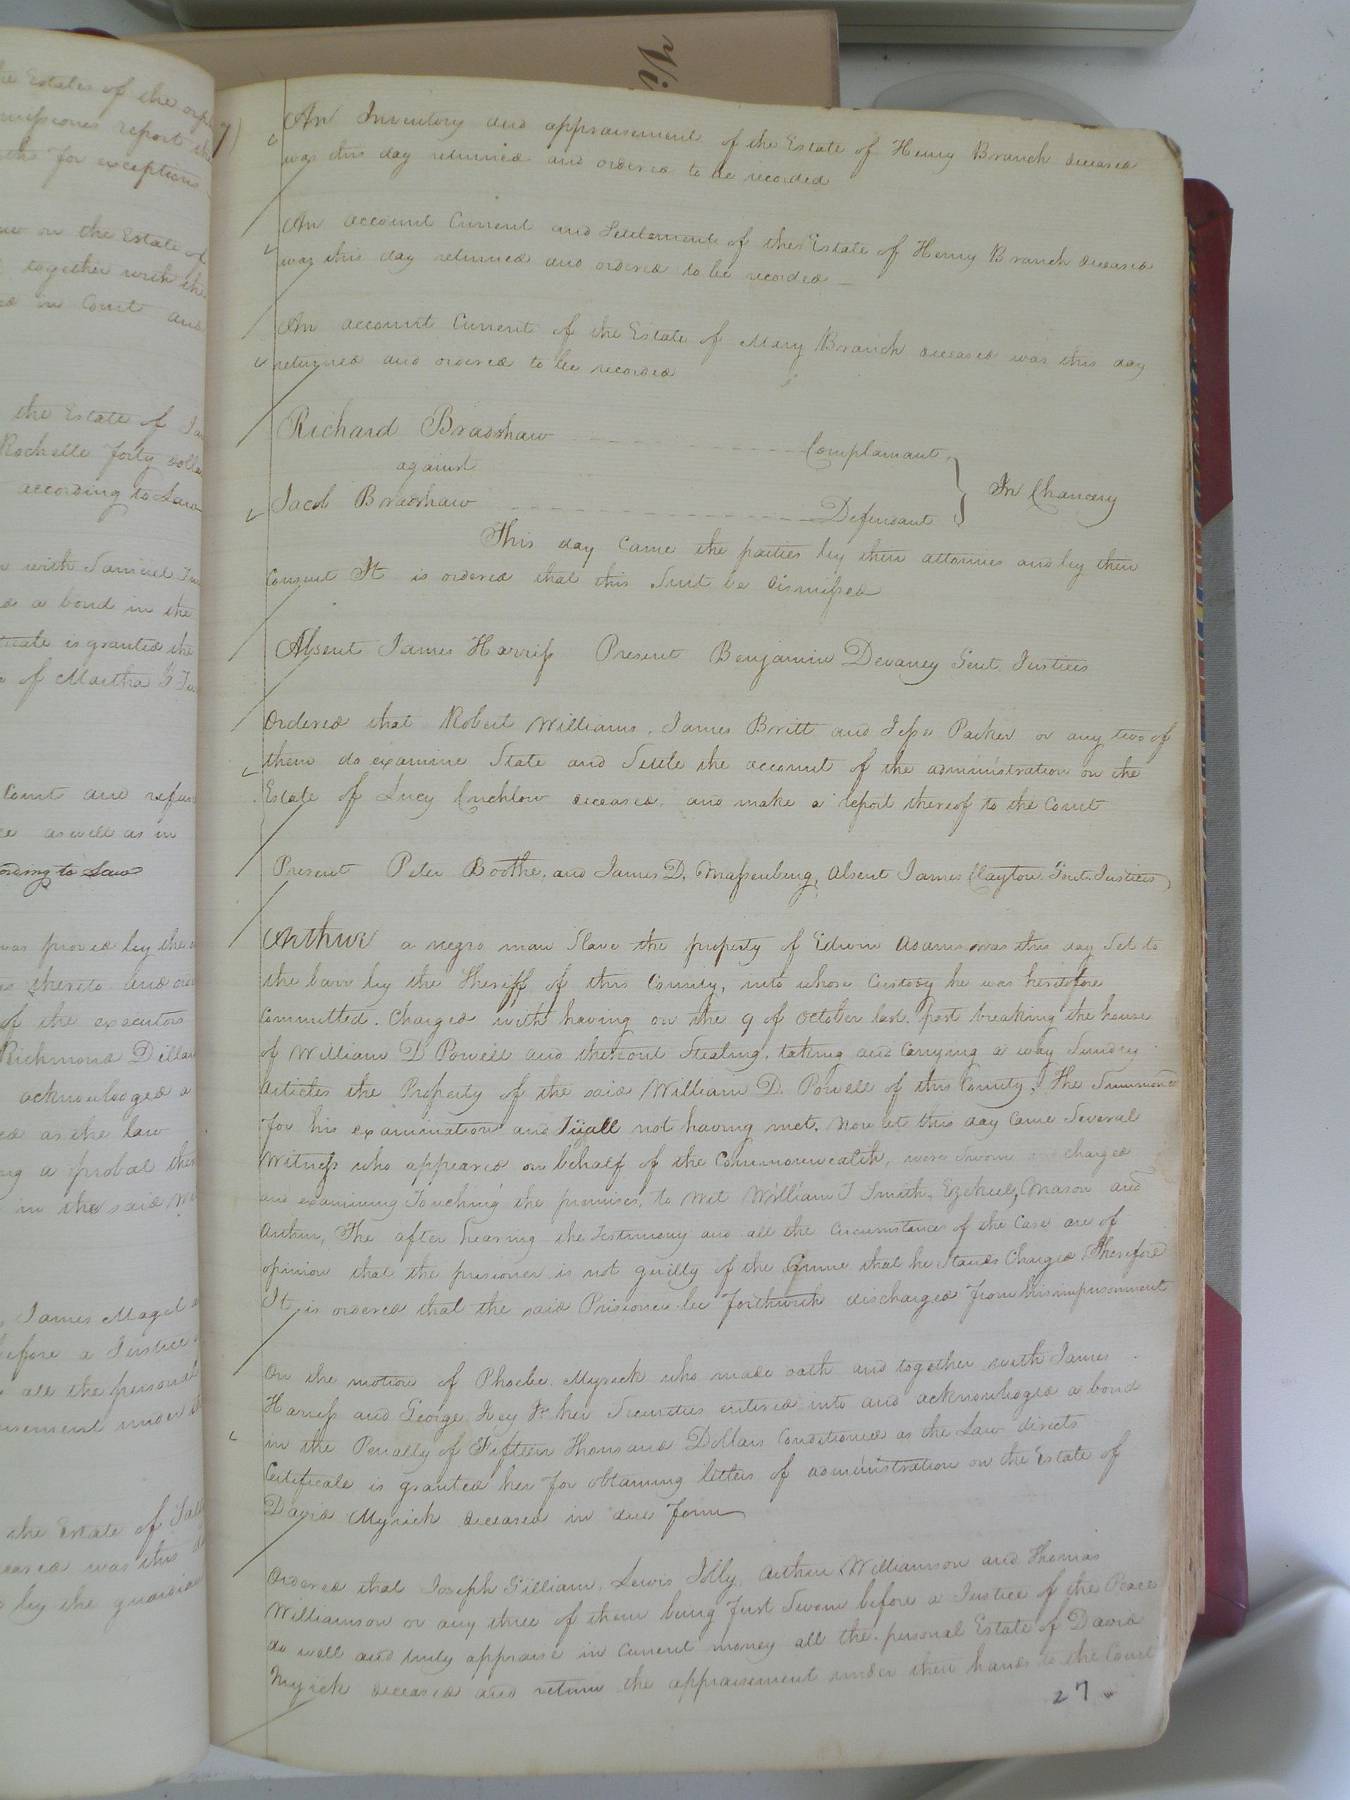 Vi
he Estates of the orph
missiones report the
ths for exceptions
on the Estate of
together with the
in Court and
the Estate of Ja
Rochelle forty dolla
according to Law
with Samuel
a bond in the
ficate is granted the
of Martha G
Court and refun
as well as in
ording to Law
was proved by the
thereto and
of the executors
Richmond Dilla
acknowledged a
ed as the law
ng a probat ther
in the said
James Maget
before a Justice
all the personal
aisement under
the Estate of
ceased was this
by the guardian
7)
An Inventory and appraisement of the Estate of Henry Branch deceased
was this day returned and ordered to be recorded
An account Current and Settlement of the Estate of Henry Branch deceased
was this day returned and ordered to be recorded
An account Current of the Estate of Mary Branch deceased was this day
returned and ordered to be recorded
Richard Bradshaw Complainant
against In Chancery
Jacob Bradshaw Defendant
This day Came the parties by their attornies and by their
Consent It is ordered that this Suit be dismissed
Absent James Harriss Present Benjamin Devaney Gent. Justices
Ordered that Robert Williams, James Britt and Jesse Parker or any two of
them do examine State and Settle the account of the administration on the
Estate of Lucy Crichlow deceased, and make a report thereof to the Court
Present Peter Boothe, and James D. Massenburg, Absent James Clayton Gent. Justices
Arthur a negro man Slave the property of Edwin Adams was this day Set to
the barr by the Sheriff of this County, into whose Custody he was heretofore
Committed. Charged with having on the 9 of October last. past breaking the house
of William D Powell and thereout Stealing, taking and Carrying a way Sundry
articles the Property of the said William D. Powell of this County. The Summoned
for his examination and Tryall not having met. Now at this day Came Several
Witness who appeared on behalf of the Commonwealth, were Sworn and charged
and examining Touching the premises, to Wit William T Smith, Ezekiel Mason and
Arthur, The after hearing the Testimony and all the Circumstances of the Case are of
opinion that the prisoner is not guilty of the Crime that he Stands Charged Therefore
It is ordered that the said Prisoner be forthwith discharged from his imprisonment
On the motion of Phoebe Myrick who made oath and together with James
Harriss and George Ivey Jr her Securities entered into and acknowledged a bond
in the Penalty of Fifteen Thousand Dollars Conditioned as the Law directs
Certificate is granted her for obtaining letters of administration on the Estate of
David Myrick deceased in due form
Ordered that Joseph Gilliam, Lewis Jolly, Arthur Williamson and Thomas
Williamson or any three of them being first Sworn before a Justice of the Peace
do well and truly appraise in Current money all the personal Estate of David
Myrick deceased and return the appraisement under their hands to the Court
27